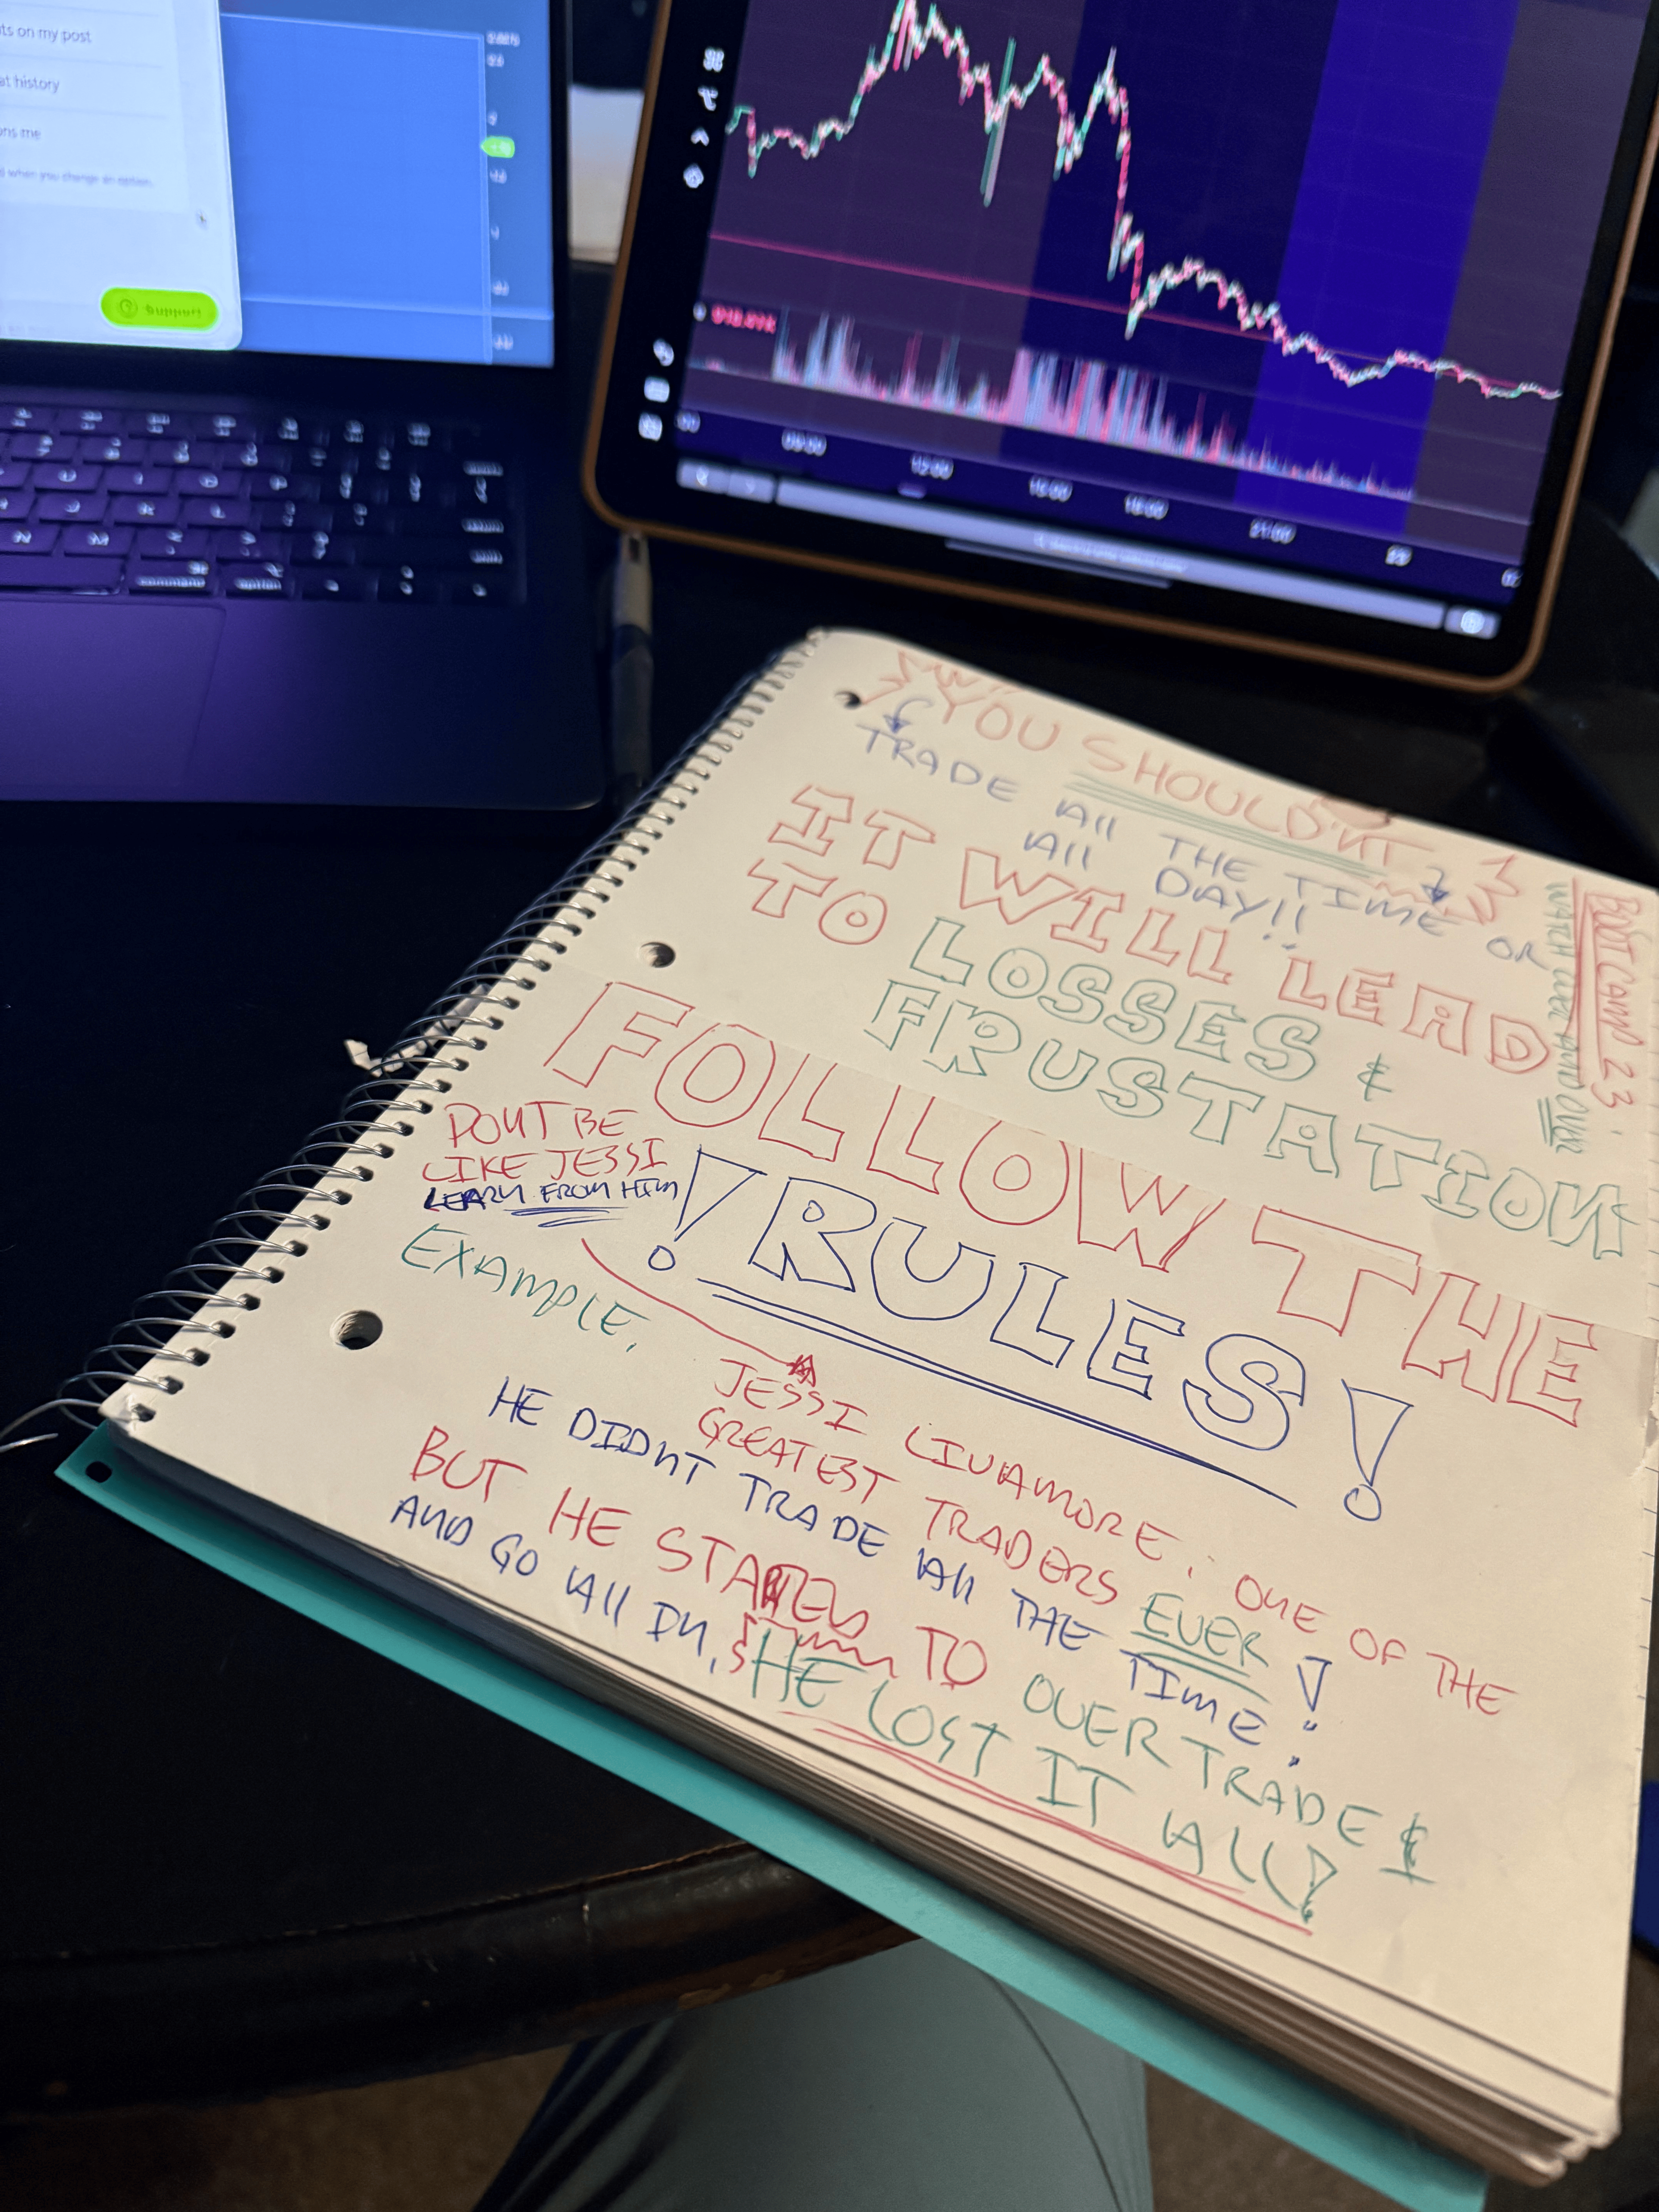 ts on my post
at history
ons me
when you change an option.
Support
command
option
09:00
12:00
18:00
21:00
23
YOU SHOULD'NT
TRADE All THE TIME OR
All DAY!!
IT WILL LEAD
TO LOSSES &
FRUSTATION
FOLLOW THE
! RULES!
BOOT CAMP 23
WATCH OVER AND OVER
DONT BE
LIKE JESSI
LEARN FROM HIM
EXAMPLE,
JESSI LIVAMORE: ONE OF THE
GREATEST TRADERS EVER!
HE DIDNT TRADE All THE TIME!
BUT HE STARTED TO OVERTRADE &
AND GO All IN, HE LOST IT ALL!